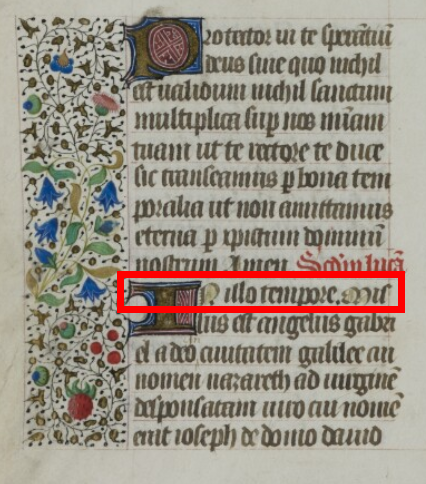 Protector in te sperātiū
deus sine quo nichil
est ualidum nichil sanctum
multiplica sup nos miām
tuam ut te rectore te duce
sic transeamus p bona tem
poralia ut non amittamus
eterna p xpistum dominū
nostrum Amen. Scdm lucā
In illo tempore. Mis
sus est angelus gabri
el a deo ciuitatem galilee cui
nomen nazareth ad uirginē
desponsatam uiro cui nomē
erat ioseph de domo dauid